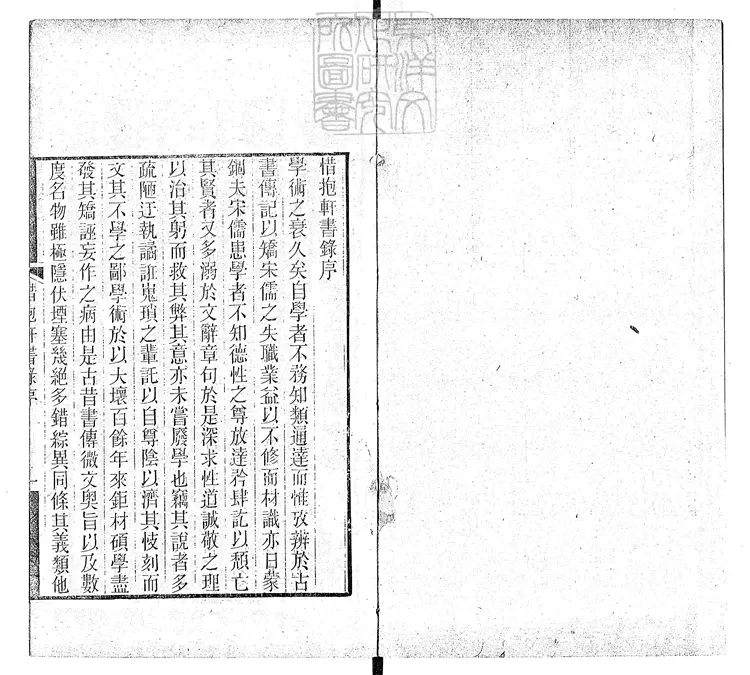 東洋文
化研究
所圖書
惜抱軒書錄序
學術之衰久矣自學者不務知類通達而惟攷辨於古
書傳記以矯宋儒之失職業益以不修而材識亦日蒙
錮夫宋儒患學者不知德性之尊放達矜肆訖以頹亡
其賢者又多溺於文辭章句於是深求性道誠敬之理
以治其躬而救其弊其意亦未嘗廢學也竊其說者多
疏陋迂執譎誑嵬瑣之輩託以自尊陰以濟其忮刻而
文其不學之鄙學術於以大壞百餘年來鉅材碩學盡
發其矯誣妄作之病由是古昔書傳微文奧旨以及數
度名物雖極隱伏堙塞幾絕多錯綜異同條其義類他
惜抱軒書錄序
一